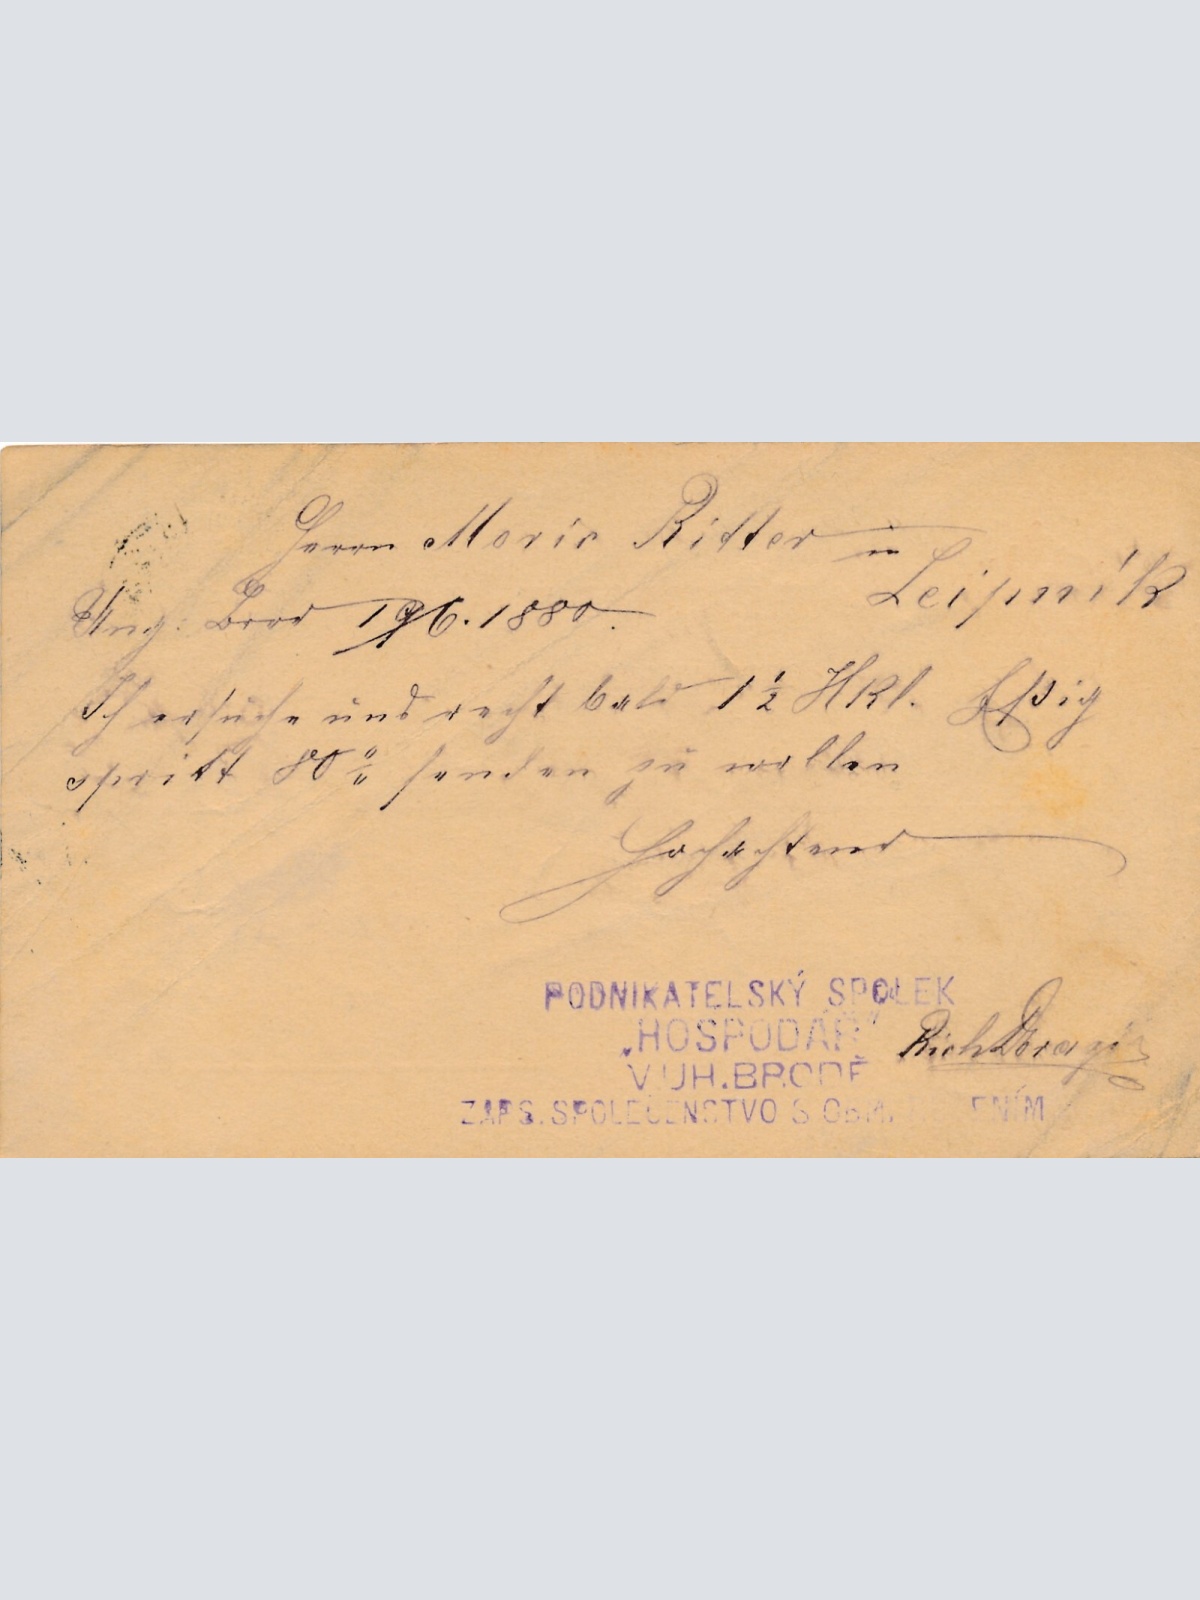 Herrn Moric Ritter in
Leipnik
Ung: Brod 19/6. 1880.
Ich ersuche uns recht bald 1 1/2 Hktl. Eßig
spritt 80 % senden zu wollen
Hochachtend
PODNIKATELSKÝ SPOLEK
„HOSPODÁŘ“
V UH. BRODĚ
ZAPS. SPOLEČENSTVO S
Rich